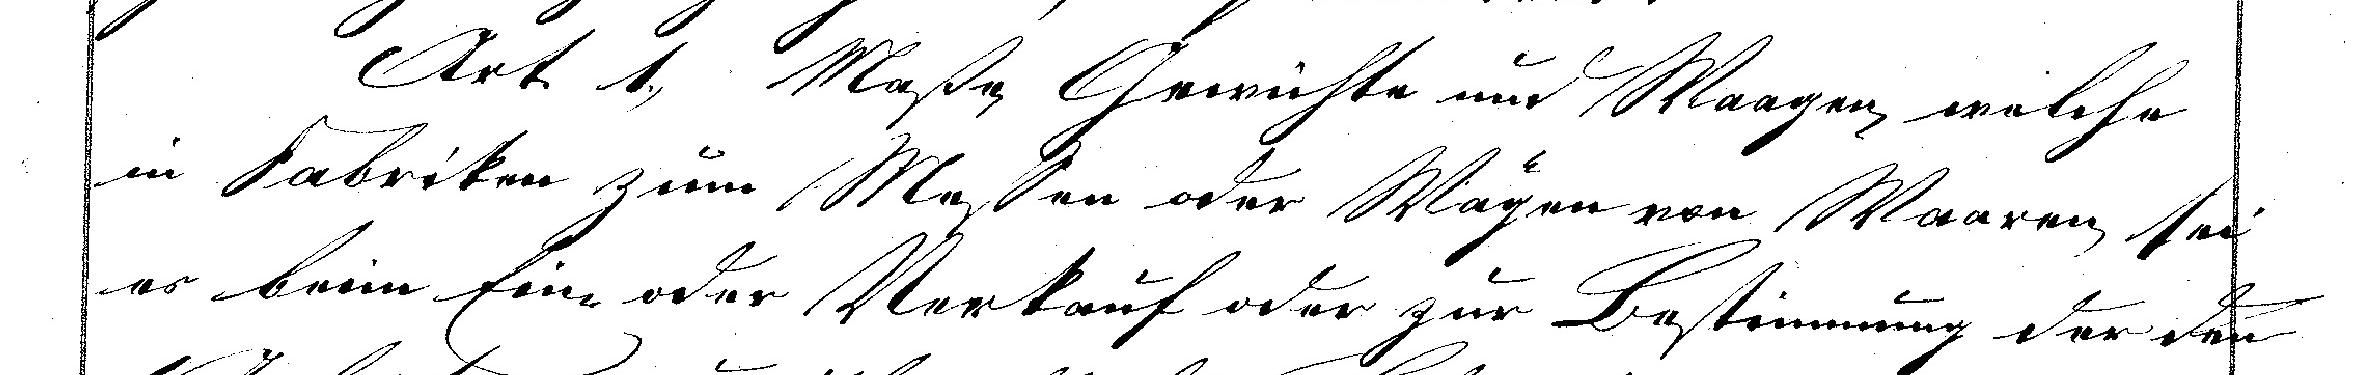 Art. 1, Maße, Gewichte und Waagen, welche
in Fabriken zum Messen oder Wägen von Waaren, sei
es beim Ein- oder Verkauf oder zur Bestimmung der den